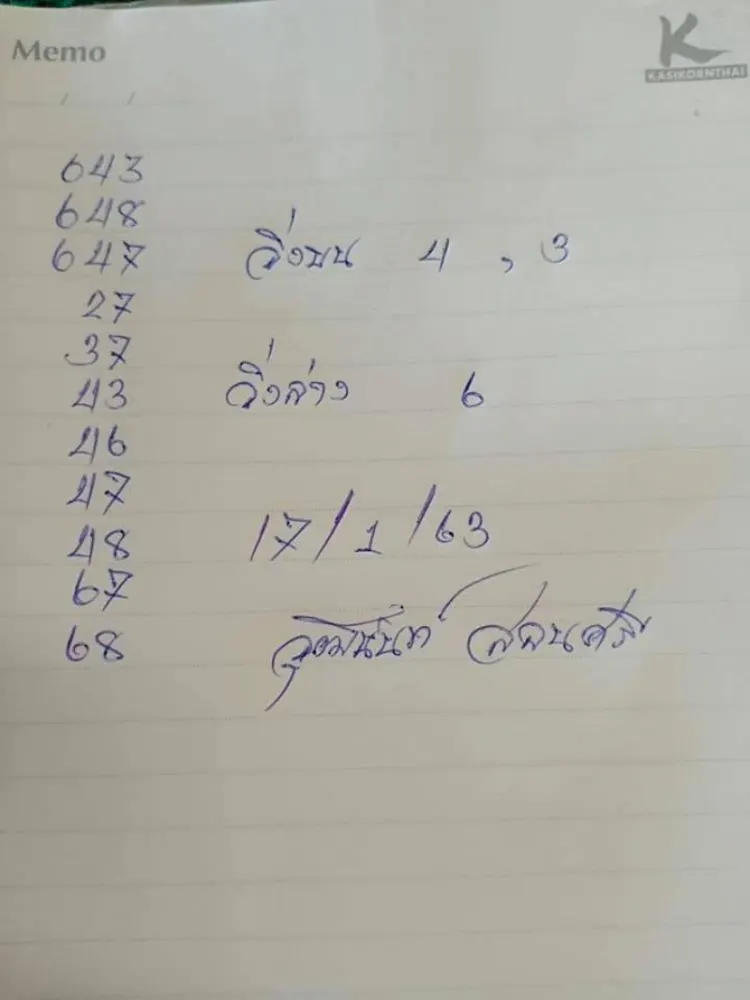 Memo
K
KASIKORNTHAI
/ /
643
648
647
วิ่งบน 4 , 3
27
37
43
วิ่งล่าง 6
46
47
48
17/1/63
67
68